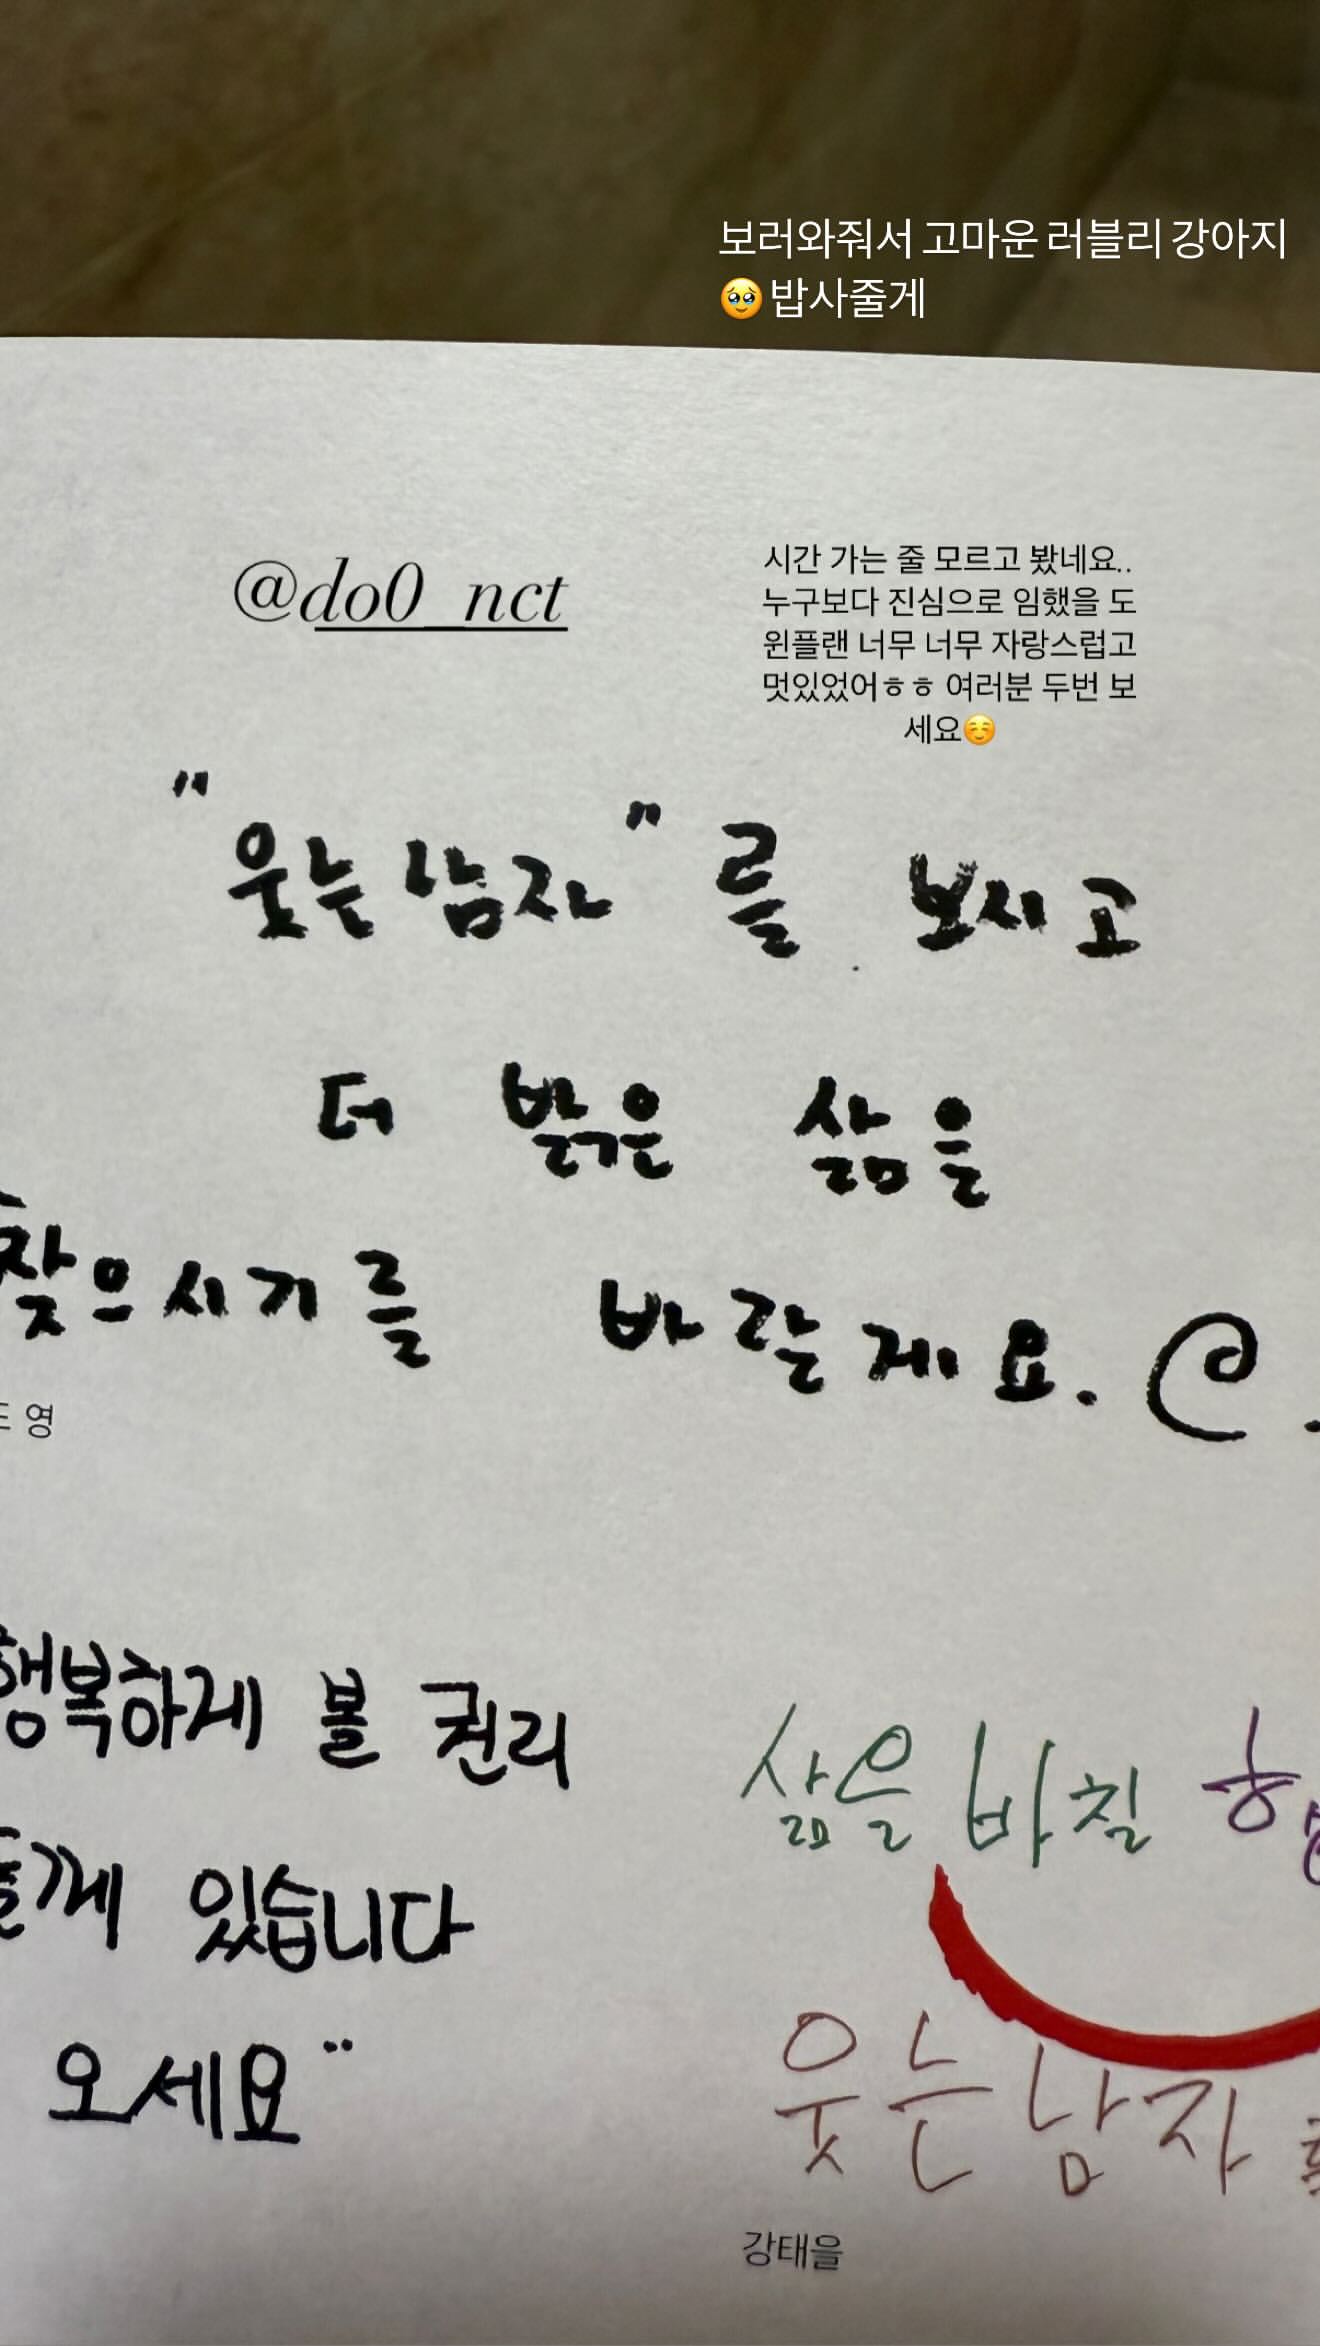 보러와줘서 고마운 러블리 강아지
🥹밥사줄게
@do0_nct
시간 가는 줄 모르고 봤네요..
누구보다 진심으로 임했을 도
윈플랜 너무 너무 자랑스럽고
멋있었어ㅎㅎ 여러분 두번 보
세요☺️
"웃는남자"를 보시고
더 밝은 삶을
찾으시기를 바랄게요.
영
행복하게 볼 권리
께 있습니다
오세요
삶을 바칠
웃는남자
강태을